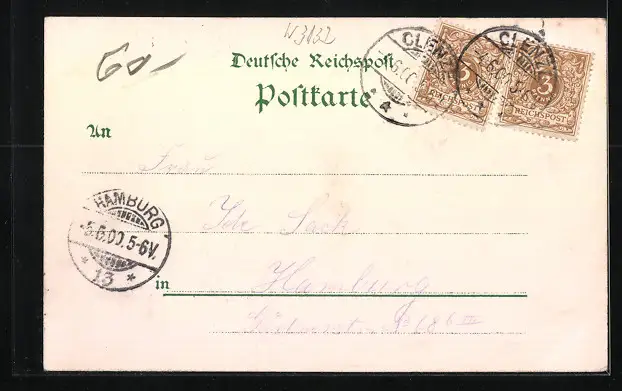 W3132
60-
Deutsche Reichspost
Postkarte
CLENZE
3
REICHSPOST
CLENZE
3
REICHSPOST
An
Frau
Ida Sack
HAMBURG
5.6.00.5-6V.
* 13 *
in Hamburg
68 III